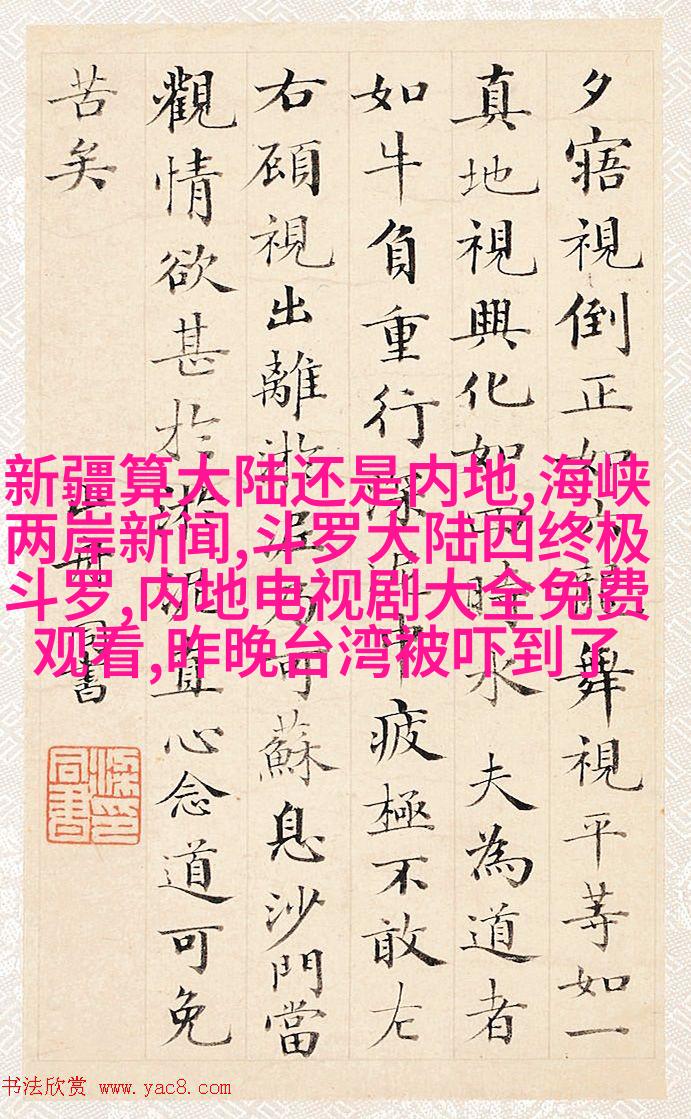 夕寤視倒正如六龍舞視平等如一
真地視興化如四時木 夫為道者
如牛負重行深泥中疲極不敢左
右顧視出離淤泥乃可蘇息沙門當
觀情欲甚於淤泥直心念道可免
苦矣
同書
新疆算大陆还是内地,海峡
两岸新闻,斗罗大陆四终极
斗罗,内地电视剧大全免费
观看,昨晚台湾被吓到了
书法欣赏 www.yac8.com